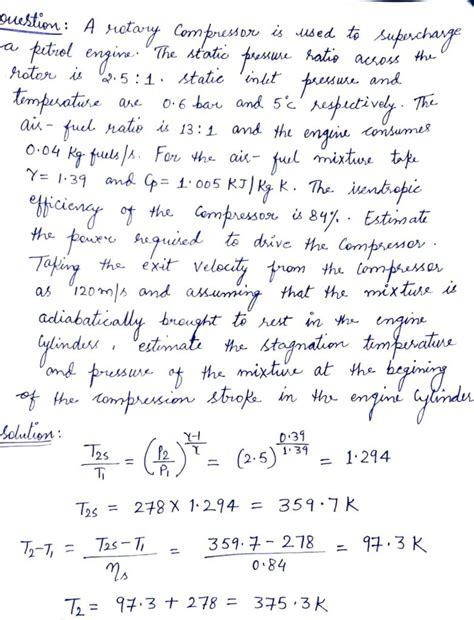 Question: A rotary Compressor is used to supercharge
a petrol engine. The static pressure ratio across the
rotor is 2.5:1. static inlet pressure and
temperature are 0.6 bar and 5°c respectively. The
air-fuel ratio is 13:1 and the engine consumes
0.04 Kg fuels/s. For the air-fuel mixture take
γ = 1.39 and Cp = 1.005 KJ/Kg K. The isentropic
efficiency of the compressor is 84%. Estimate
the power required to drive the Compressor.
Taking the exit velocity from the compressor
as 120m/s and assuming that the mixture is
adiabatically brought to rest in the engine
Cylinders, estimate the stagnation temperature
and pressure of the mixture at the begining
of the compression stroke in the engine Cylinder
Solution:
T2s/T1 = (P2/P1)^(γ-1/γ) = (2.5)^(0.39/1.39) = 1.294
T2s = 278 × 1.294 = 359.7 K
T2-T1 = (T2s-T1)/ηs = (359.7-278)/0.84 = 97.3 K
T2 = 97.3 + 278 = 375.3 K